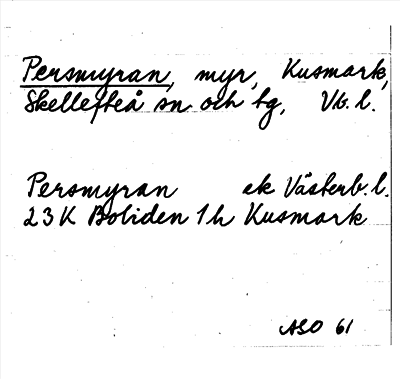 Persmyran, myr, Kusmark,
Skellefteå sn och tg, Vb. l.
Persmyran ek Västerb. l.
23 K Boliden 1h Kusmark
ASO 61